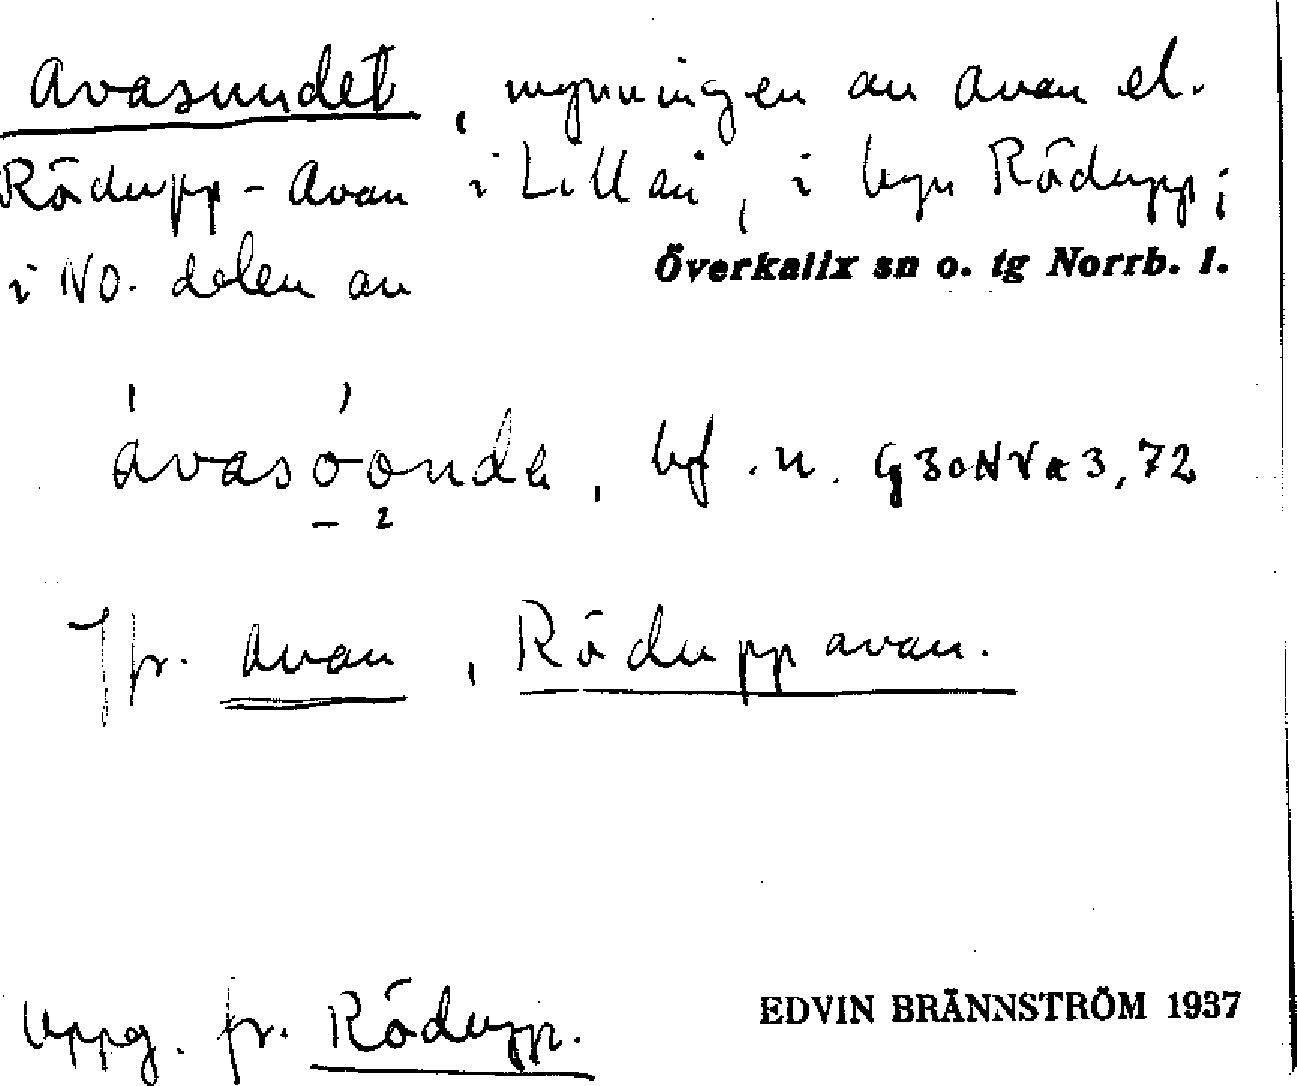 Avasundet, mynningen av Avan el.
Rödupp-Avan i Lillån, i byn Rödupp;
i NO. delen av Överkalix sn o. tg Norrb. l.
ávasóonda, bf. n. G30NVa3,72
Jfr. Avan, Röduppavan.
Uppg. fr. Rödupp. EDVIN BRÄNNSTRÖM 1937